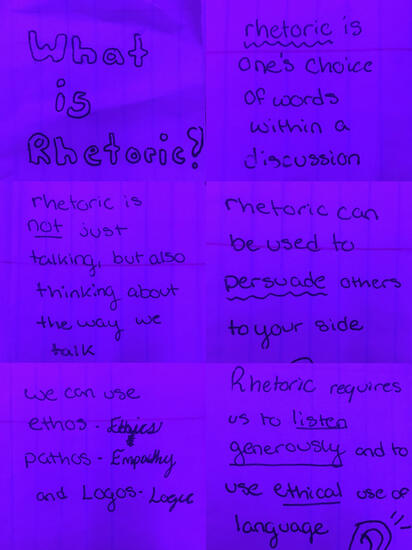 What
is
Rhetoric?
rhetoric is
one's choice
of words
within a
discussion
rhetoric is
not just
talking, but also
thinking about
the way we
talk
rhetoric can
be used to
persuade others
to your side
we can use
ethos - Ethics
pathos - Empathy
and Logos - Logic
Rhetoric requires
us to listen
generously and to
use ethical use of
language